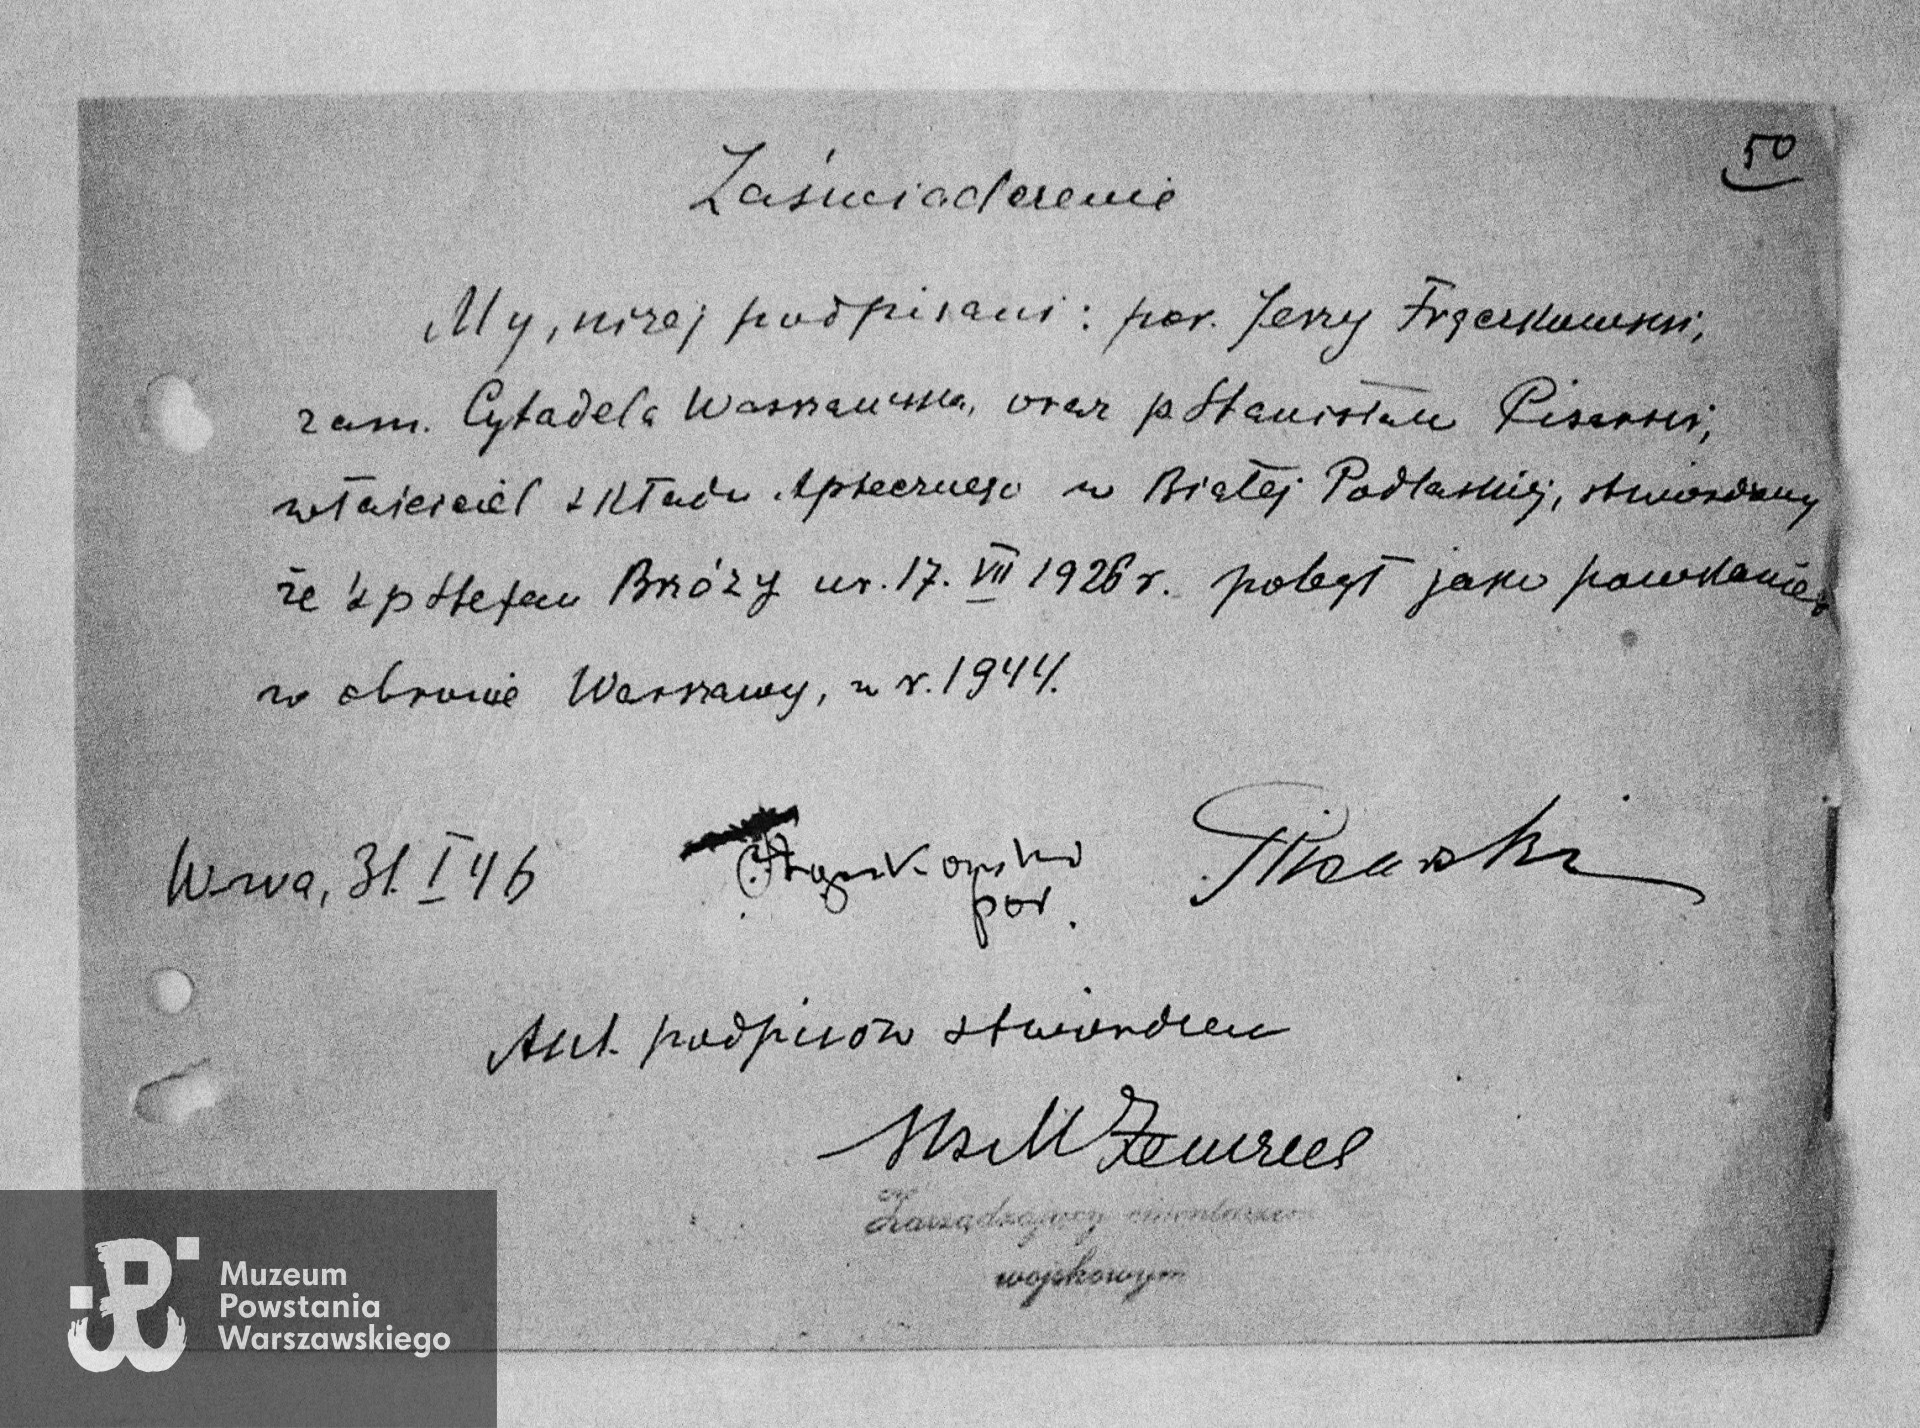 50
Zaświadczenie
My, niżej podpisani: por. Jerzy Frączkowski,
zam. Cytadela Warszawska, oraz p Stanisław Pisarski,
właściciel składu Aptecznego w Białej Podlaskiej, stwierdzamy
że ś p Stefan Brzózy ur. 17. VII 1926 r. poległ jako powstaniec
w obronie Warszawy, w r. 1944.
W-wa, 31. I 46
Frączkowski
Pisarski
por.
Aut. podpisów stwierdzam
Zarządzający cmentarzem
wojskowym
Muzeum
Powstania
Warszawskiego